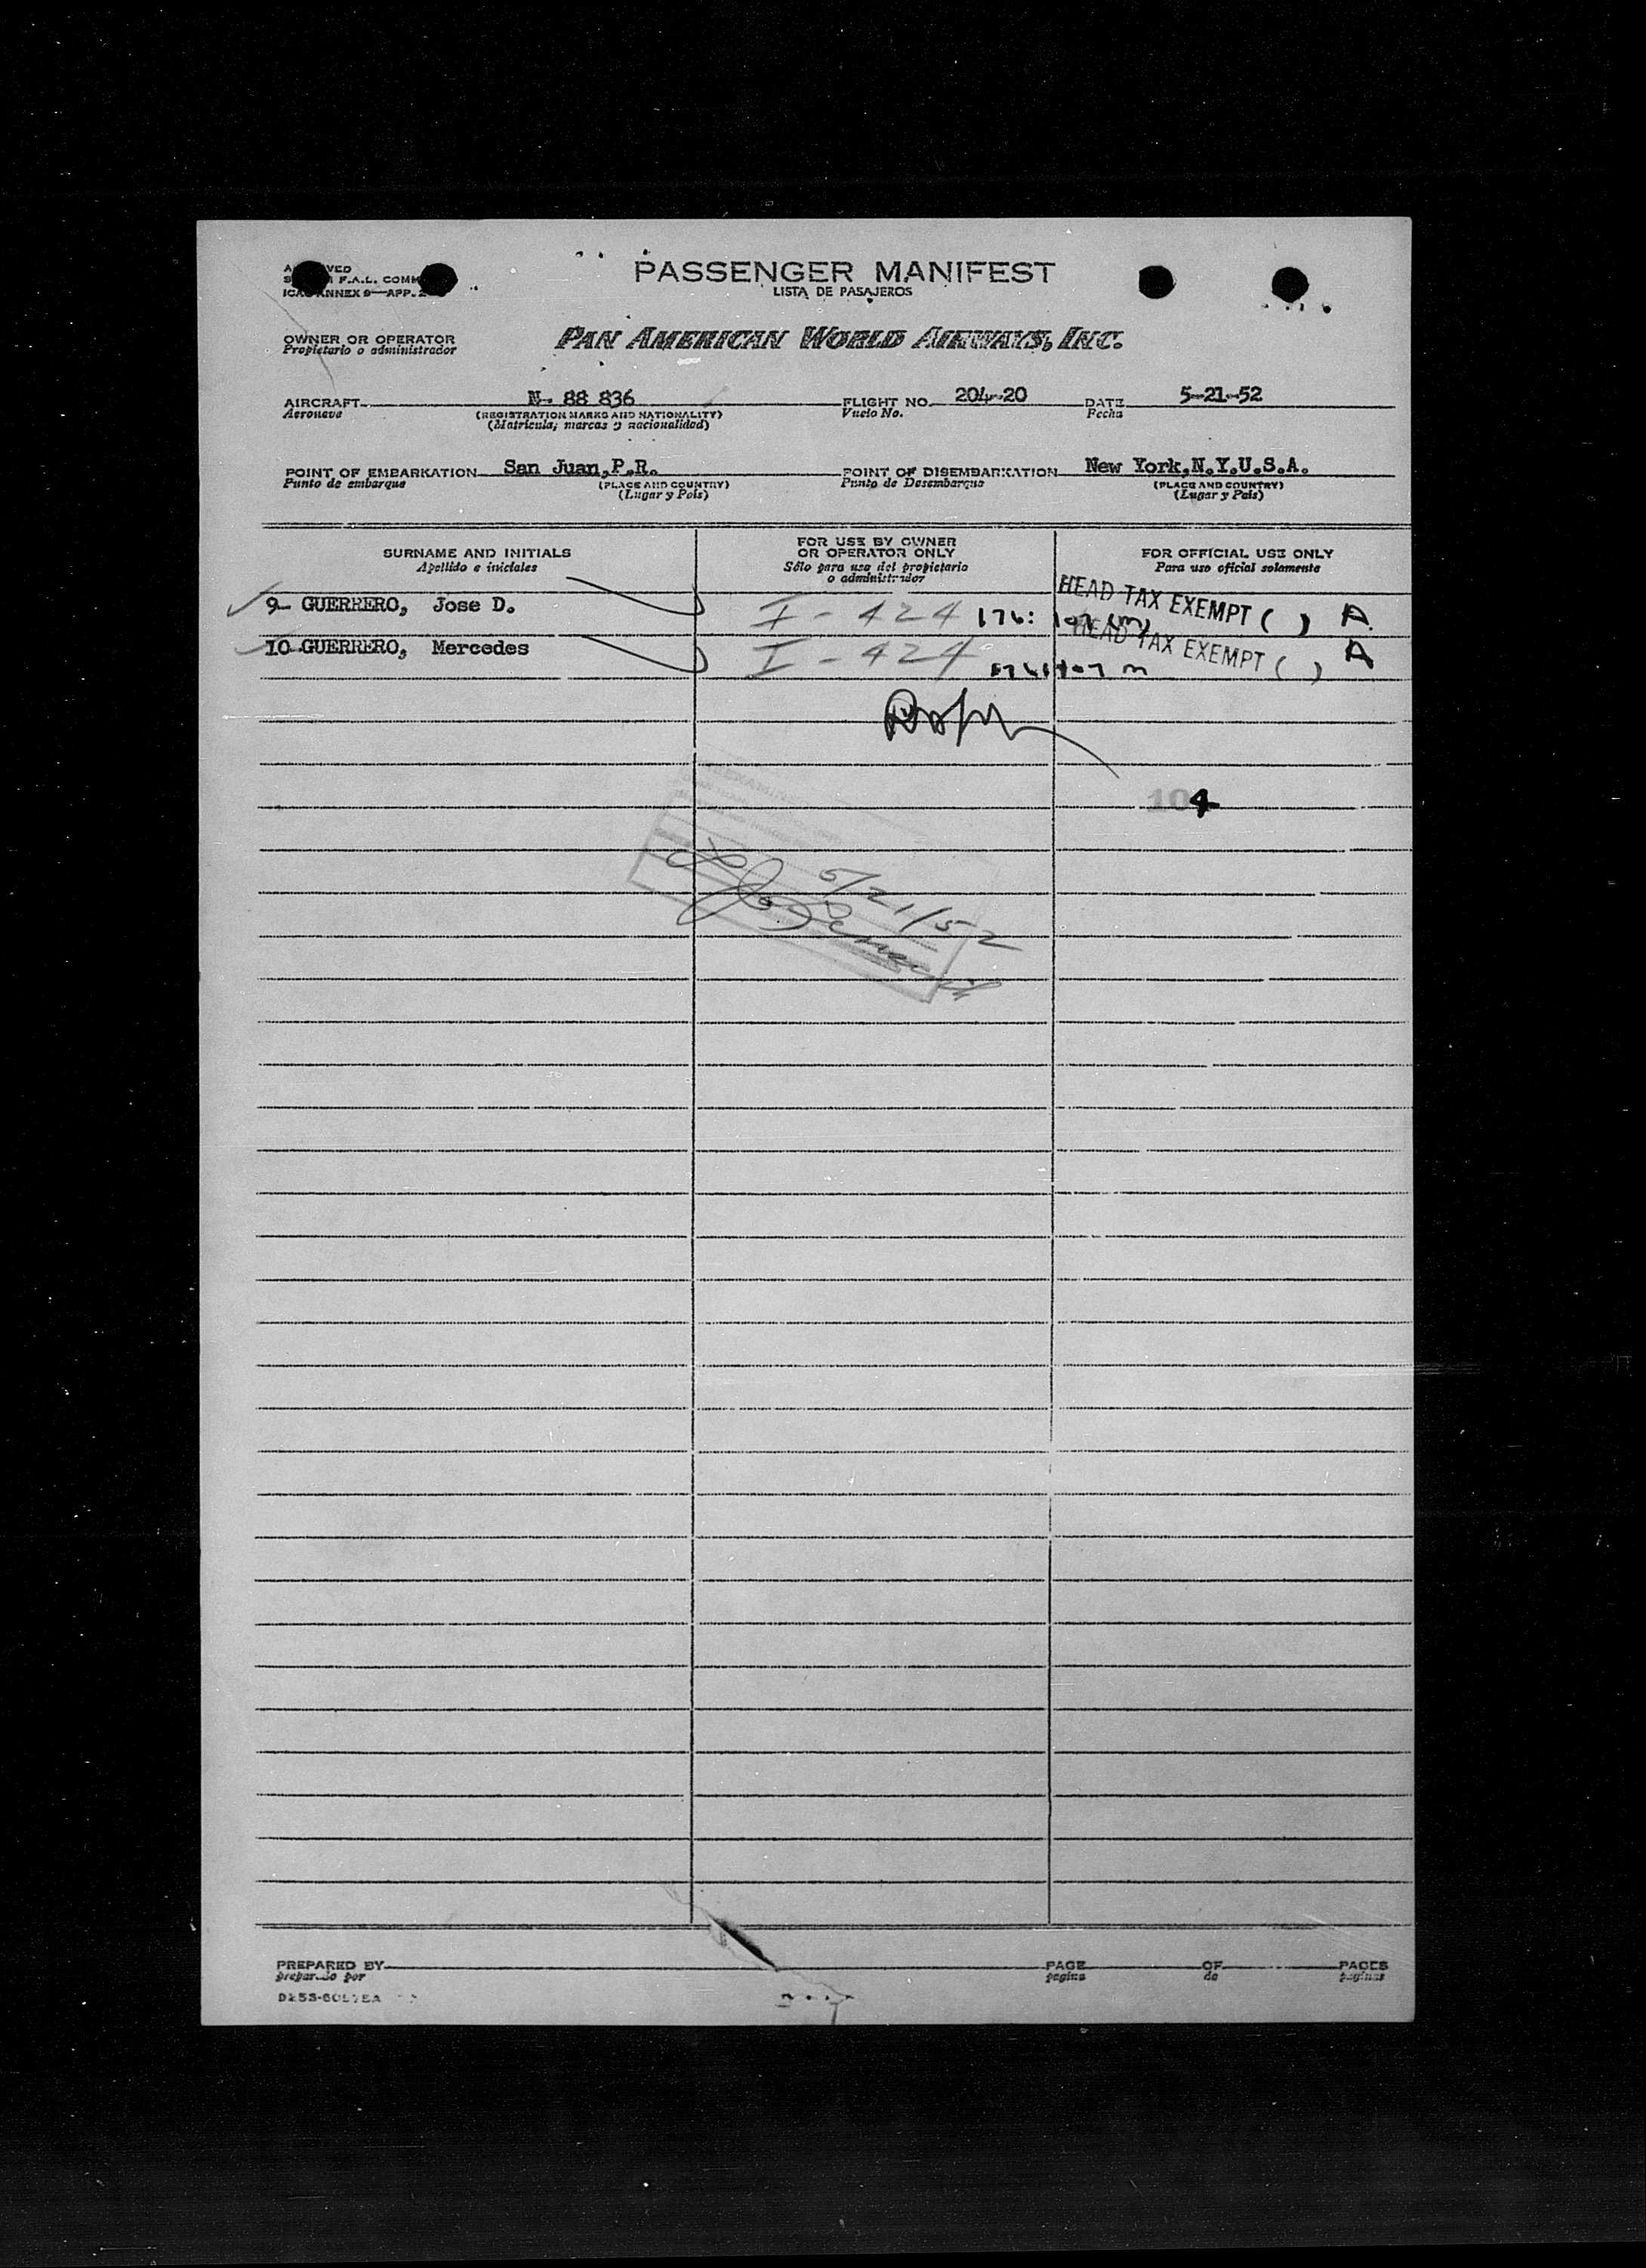 PASSENGER MANIFEST
LISTA DE PASAJEROS
F.A.L. COMM
ANNEX 9—APP.
OWNER OR OPERATOR
Propietario o administrador
PAN AMERICAN WORLD AIRWAYS, INC.
AIRCRAFT N- 88 836 FLIGHT NO. 204-20 DATE 5-21-52
Aeronave (REGISTRATION MARKS AND NATIONALITY) Vuelo No. Fecha
(Matricula, marcas y nacionalidad)
POINT OF EMBARKATION San Juan,P.R. POINT OF DISEMBARKATION New York,N.Y.U.S.A.
Punto de embarque (PLACE AND COUNTRY) Punto de Desembarque (PLACE AND COUNTRY)
(Lugar y Pais) (Lugar y Pais)
SURNAME AND INITIALS
Apellido e iniciales
FOR USE BY OWNER
OR OPERATOR ONLY
Sólo para uso del propietario
o administrador
FOR OFFICIAL USE ONLY
Para uso oficial solamente
9- GUERRERO, Jose D. I - 424 176: 107 (m) HEAD TAX EXEMPT ( ) A.
10 GUERRERO, Mercedes I - 424 HEAD TAX EXEMPT ( ) A
104
5/21/52
PREPARED BY PAGE OF PAGES
preparado por pagina de paginas